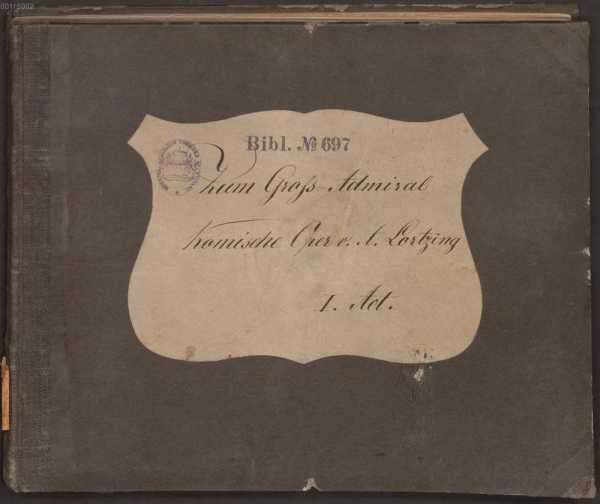 00115002
Bibl. № 697
Zum Groß-Admiral
Komische Oper v. A. Lortzing
I. Act.